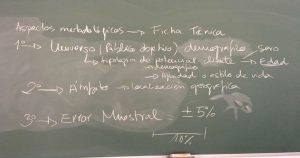 Aspectos metodológicos → Ficha Técnica
1º → Universo (Público objetivo) demográfico sexo
→ tipología de potencial cliente → Edad
→ demográfico
→ Actitud o estilo de vida
2º → Ámbito → localización geográfica
3º → Error Muestral = ± 5%
10%